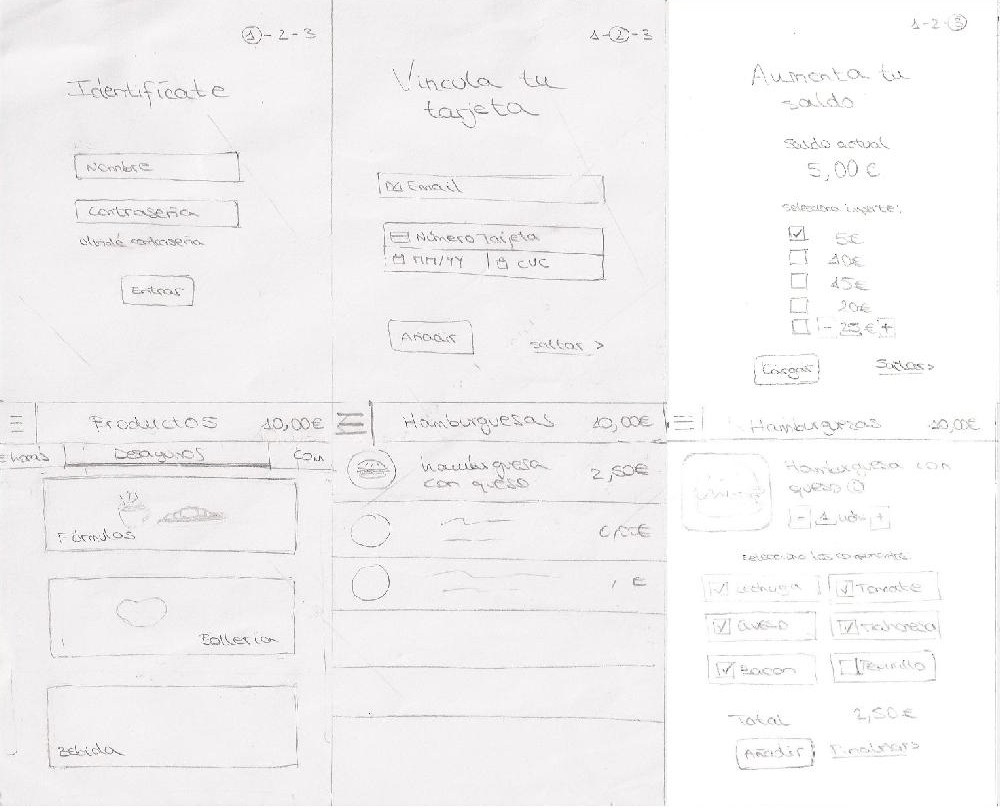 1 - 2 - 3
Identifícate
Nombre
Contraseña
Olvidé contraseña
Entrar
1 - 2 - 3
Vincula tu
tarjeta
Email
Número Tarjeta
MM/YY
CVC
Añadir
Saltar >
1 - 2 - 3
Aumenta tu
saldo
Saldo actual
5,00 €
Selecciona importe:
5€
10€
15€
20€
- 25 € +
Cargar
Saltar >
Productos 10,00€
Desayunos
Fórmulas
Bollería
Bebida
Hamburguesas 10,00€
hamburguesa
con queso
2,50€
€
Hamburguesas 10,00€
Hamburguesa con
queso
- 1 ud. +
Selecciona los componentes
Lechuga
Tomate
Queso
Mahonesa
Bacon
Pepinillo
Total 2,50€
Añadir
Finalizar >